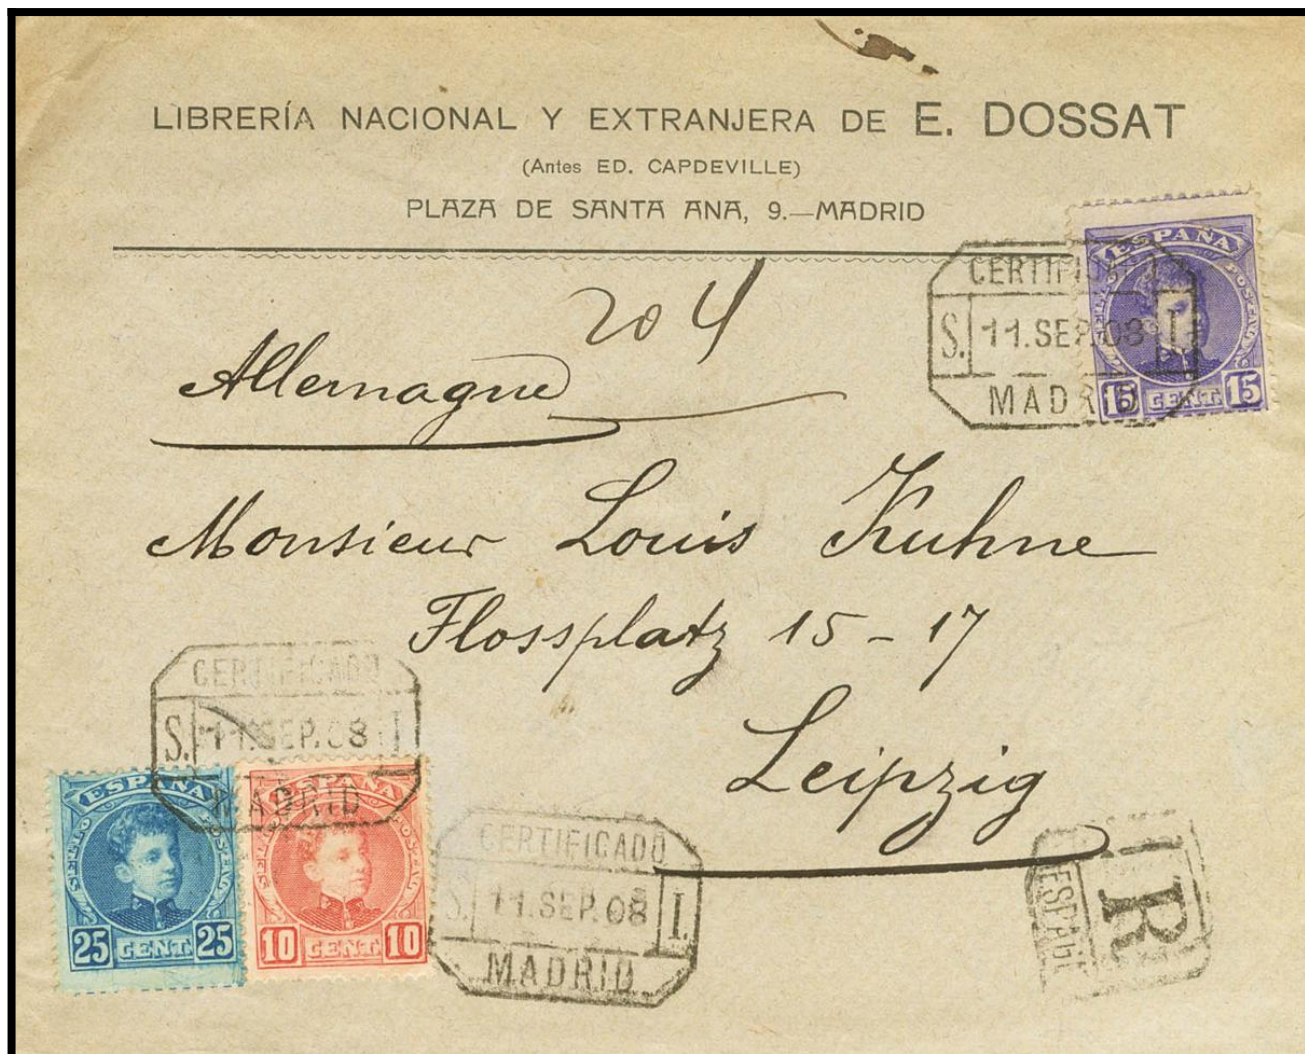 LIBRERÍA NACIONAL Y EXTRANJERA DE E. DOSSAT
(Antes ED. CAPDEVILLE)
PLAZA DE SANTA ANA, 9.—MADRID
ESPAÑA
15 CENT. 15
CERTIFICADO
S. 11.SEP.08 I
MADRID
204
Allemagne
Monsieur Louis Kuhne
Flossplatz 15-17
Leipzig
CERTIFICADO
S. 11.SEP.08 I
MADRID
ESPAÑA
25 CENT. 25
ESPAÑA
10 CENT. 10
CERTIFICADO
S. 11.SEP.08 I.
MADRID
R